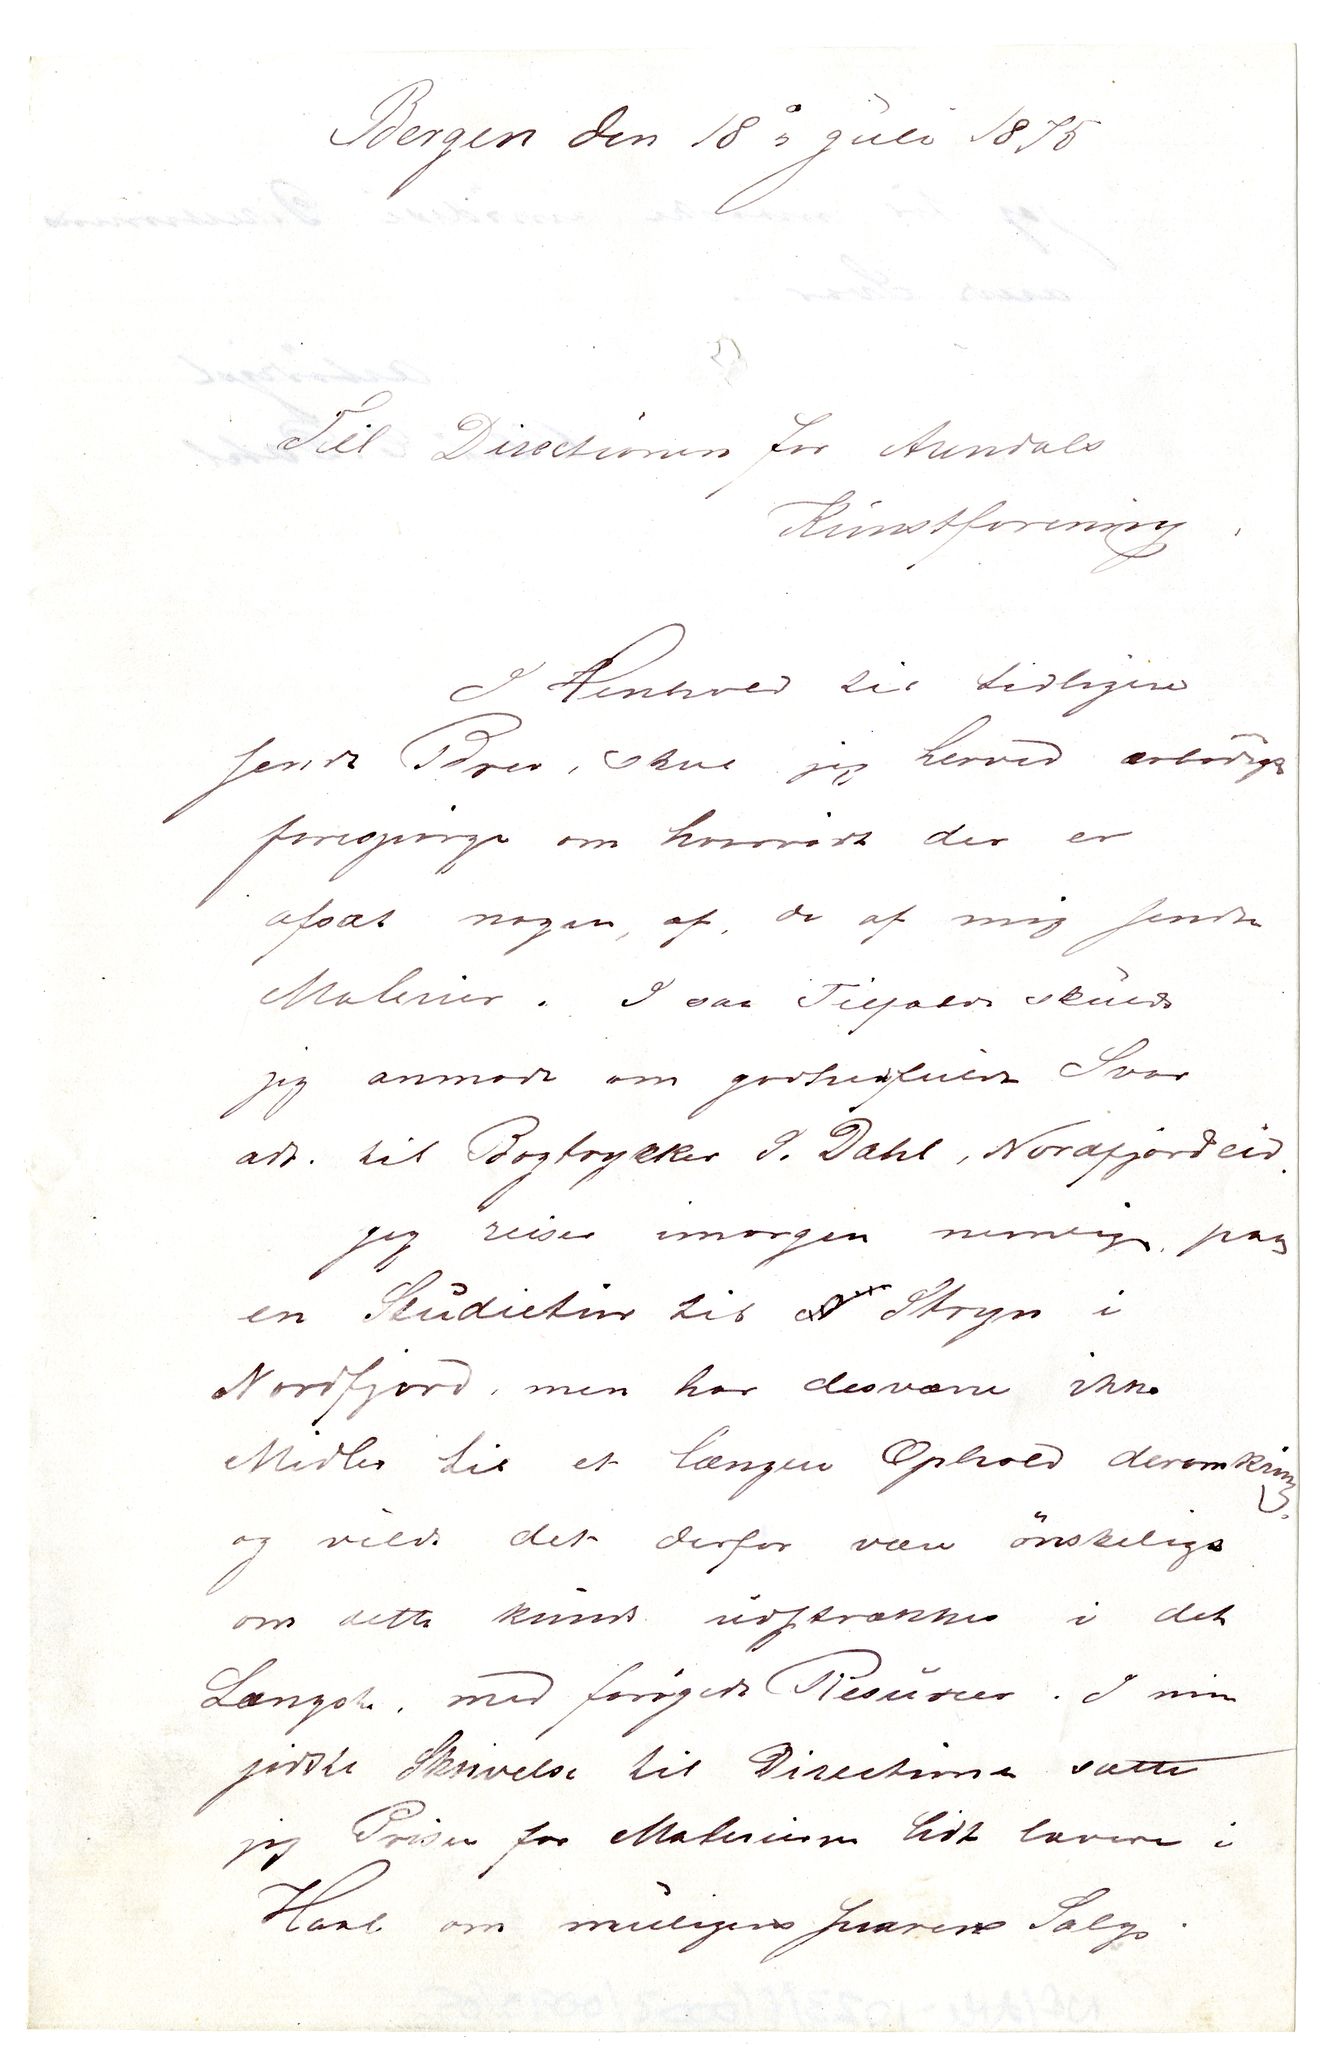 Bergen den 18de Juli 1875
Til Directionen for Arendals
Kunstforening.
I Henhold til tidligere
sendt Brev, skal jeg herved ærbödigst
forespörge om hvorvidt der er
afsat nogen, af, de af mig sendte
Malerier. I saa Tilfælde skulde
jeg anmode om godhedsfuldt Svar
adr. til Bogtrykker J. Dahl, Nordfjordeid.
Jeg reiser imorgen nemlig paa
en Studietur til Stryn i
Nordfjord, men har desværre ikke
Midler til et længere Ophold deromkring,
og vilde det derfor være önskeligt
om dette kunde udstrækkes i det
Længste, med forøgede Resurcer. I min
sidste Skrivelse til Directionen satte
jeg Prisen for Malerierne lidt lavere i
Haab om muligens snarere Salg.